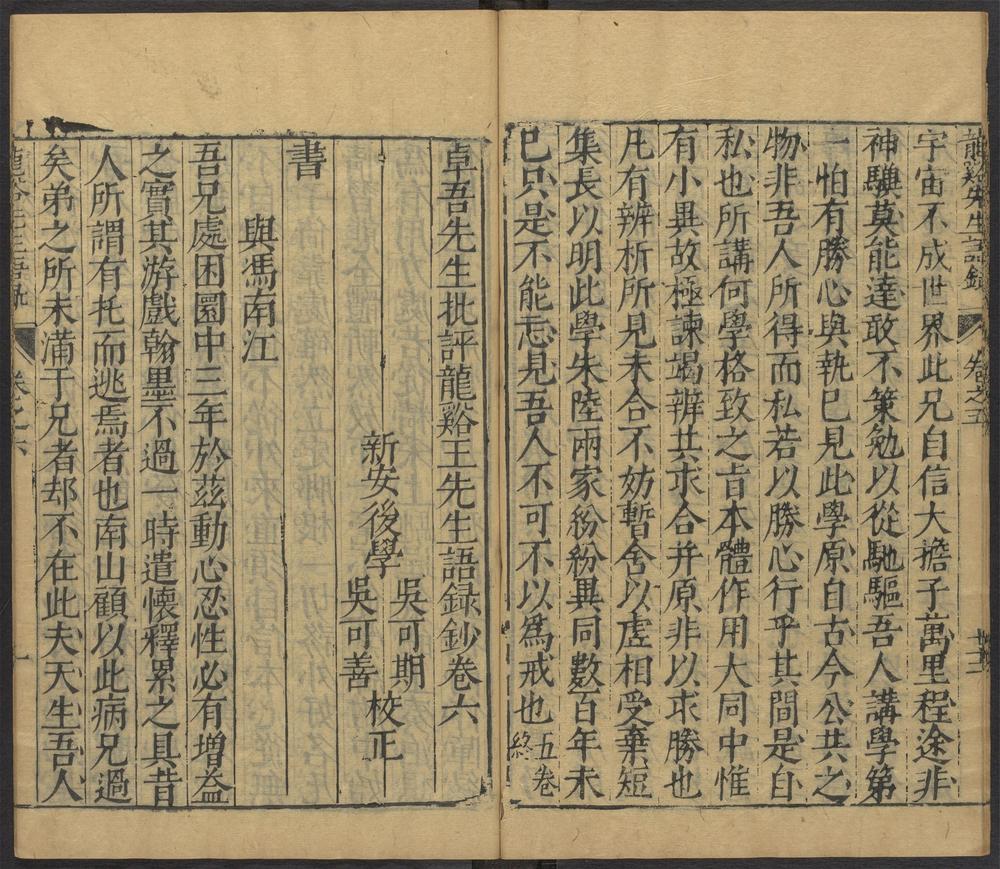 龍谿先生語錄 卷之五
宇宙不成世界此兄自信大擔子萬里程途非
神驥莫能達敢不策勉以從馳驅吾人講學第
一怕有勝心與執已見此學原自古今公共之
物非吾人所得而私若以勝心行乎其間是自
私也所講何學格致之旨本體作用大同中惟
有小異故極諫竭辨共求合并原非以求勝也
凡有辨析所見未合不妨暫舍以虛相受棄短
集長以明此學朱陸兩家紛紛異同數百年未
已只是不能忘見吾人不可不以為戒也 五卷終
卓吾先生批評龍谿王先生語録鈔卷六
新安後學 吳可期 校正
吳可善
書
與馮南江
吾兄處困圜中三年於茲動心忍性必有增益
之實其游戲翰墨不過一時遣懷釋累之具昔
人所謂有托而逃焉者也南山顧以此病兄過
矣弟之所未滿于兄者却不在此夫天生吾人
龍谿先生語錄 卷之六 一